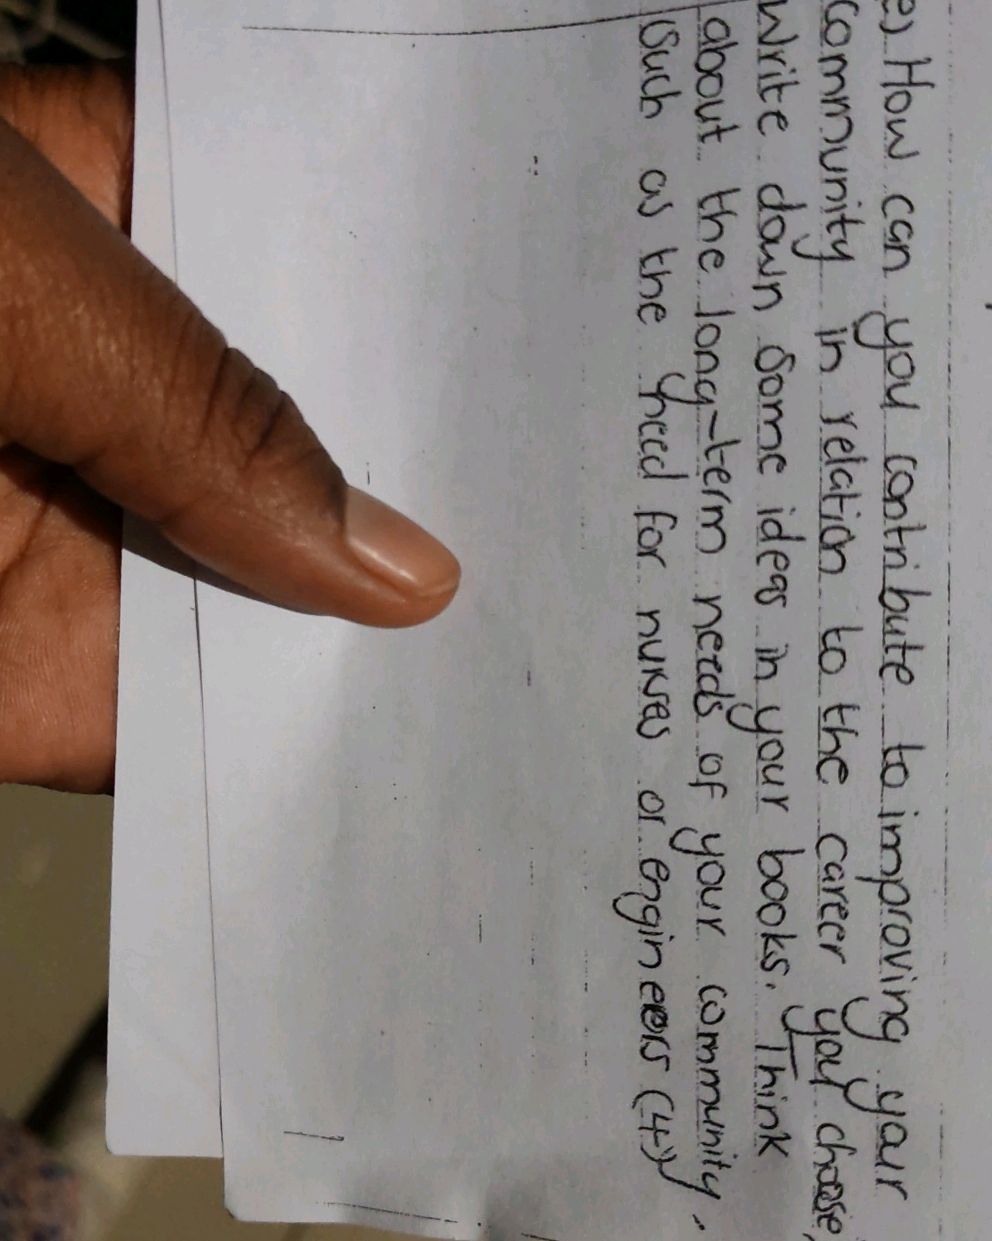 e) How can you contribute to improving your
community in relation to the career you choose,
Write down some ideas in your books. Think
about the long-term needs of your community,
Such as the need for nurses or engineers (4)